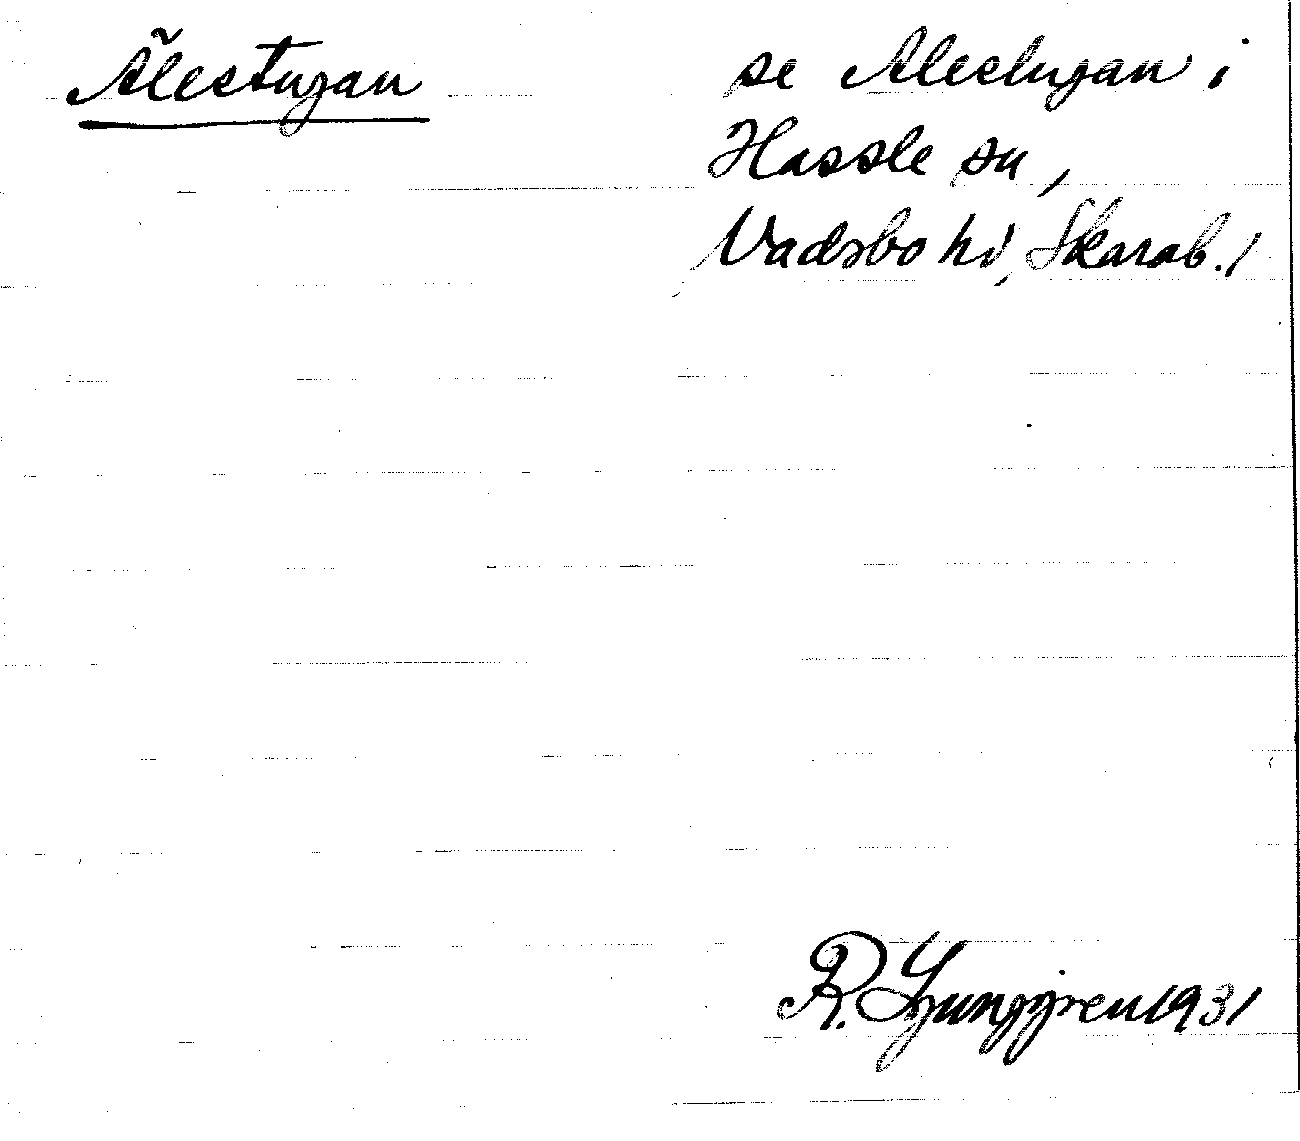 Älestugan
se Alestugan i
Hassle sn,
Vadsbo hd, Skarab. l
R. Ljunggren 1931